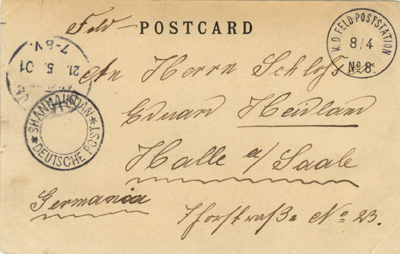 Feld- POSTCARD
K.D. FELD-POSTSTATION
8/4
No 8.
21.5.01
7-8V.
An Herrn Schloss
Eduard Heidlau
Halle a/Saale
Germania
SHANHAIKUAN
DEUTSCHE POST
No 23.